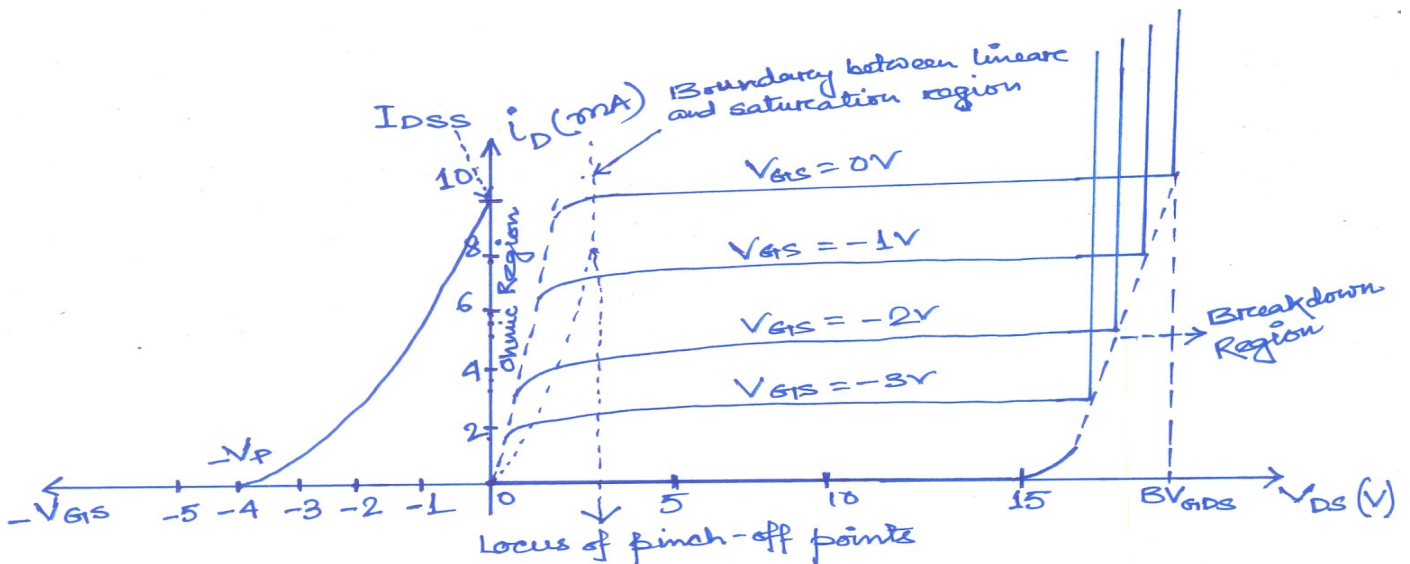 Boundary between linear
and saturation region
IDSS
iD(mA)
10
8
6
4
2
Ohmic Region
VGS = 0V
VGS = -1V
VGS = -2V
VGS = -3V
Breakdown
Region
-VP
-VGS
-5 -4 -3 -2 -1 0 5 10 15 BVGDS VDS (V)
Locus of pinch-off points